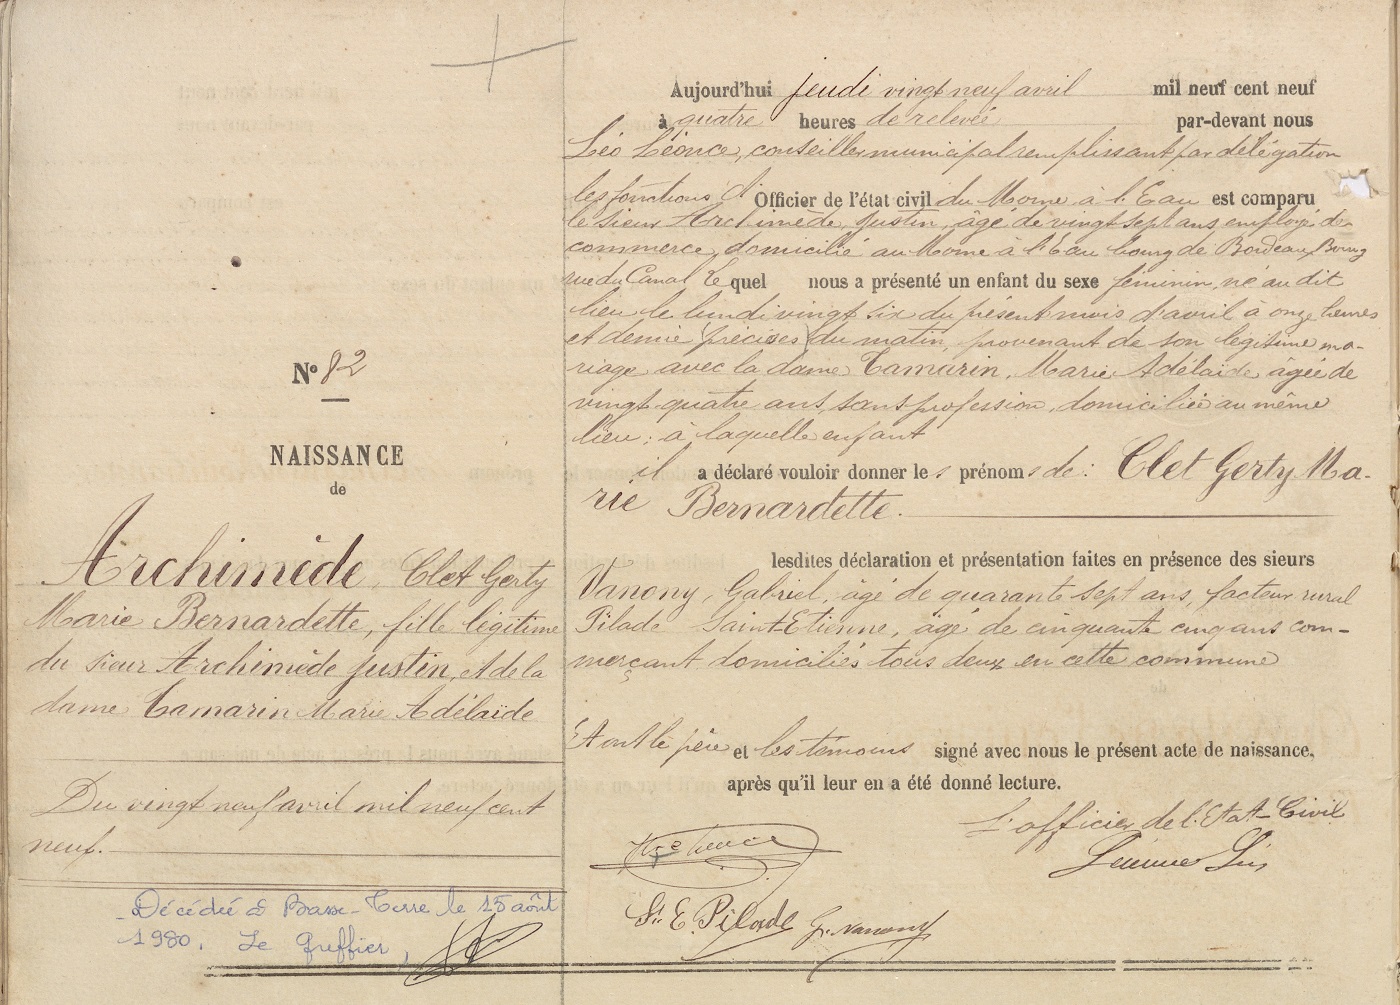 N° 82
NAISSANCE
de
Archimède, Clet Gerty
Marie Bernardette, fille légitime
du sieur Archimède Justin, et de la
dame Tamarin Marie Adélaïde
Du vingt neuf avril mil neuf cent
neuf.
Décédée à Basse-Terre le 15 août
1980. Le Greffier,
Aujourd'hui jeudi vingt neuf avril mil neuf cent neuf
à quatre heures de relevée par-devant nous
Léo Léonce, conseiller municipal remplissant par délégation
les fonctions d' Officier de l'état civil du Morne à l'Eau est comparu
le sieur Archimède, Justin, âgé de vingt sept ans, employé de
commerce, domicilié au Morne à l'Eau bourg de Bordeaux Bourg
rue du Canal Le quel nous a présenté un enfant du sexe féminin, né au dit
lieu le lundi vingt six du présent mois d'avril à onze heures
et demie (précises) du matin, provenant de son légitime ma-
riage avec la dame Tamarin, Marie Adélaïde âgée de
vingt-quatre ans, sans profession, domiciliée au même
lieu : à laquelle enfant
il a déclaré vouloir donner les prénoms de : Clet Gerty Ma-
rie Bernardette.
lesdites déclaration et présentation faites en présence des sieurs
Vanony, Gabriel, âgé de quarante sept ans, facteur rural
Pilade Saint-Etienne, âgé de cinquante cinq ans com-
merçant domiciliés tous deux en cette commune
Et ont le père et les témoins signé avec nous le présent acte de naissance,
après qu'il leur en a été donné lecture.
L'officier de l'Etat-Civil
St. E. Pilade G. Vanony